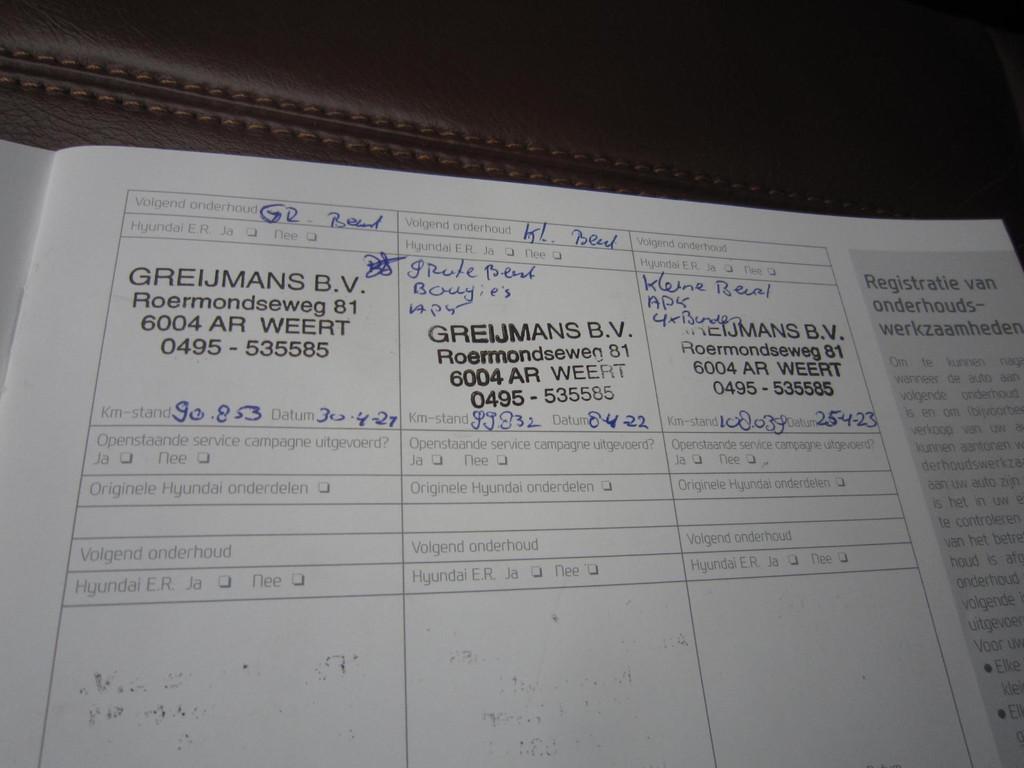 Volgend onderhoud GR. Beurt
Hyundai E.R. Ja Nee
GREIJMANS B.V.
Roermondseweg 81
6004 AR WEERT
0495 - 535585
Km-stand 90.853 Datum 30-4-21
Openstaande service campagne uitgevoerd?
Ja Nee
Originele Hyundai onderdelen
Volgend onderhoud
Hyundai E.R. Ja Nee
Volgend onderhoud Kl. Beurt
Hyundai E.R. Ja Nee
grote Beurt
Bougie's
APK
GREIJMANS B.V.
Roermondseweg 81
6004 AR WEERT
0495 - 535585
Km-stand 99832 Datum 8-4-22
Openstaande service campagne uitgevoerd?
Ja Nee
Originele Hyundai onderdelen
Volgend onderhoud
Hyundai E.R. Ja Nee
Volgend onderhoud
Hyundai E.R. Ja Nee
Kleine Beurt
APK
4x Banden
GREIJMANS B.V.
Roermondseweg 81
6004 AR WEERT
0495 - 535585
Km-stand 108.039 Datum 25-4-23
Openstaande service campagne uitgevoerd?
Ja Nee
Originele Hyundai onderdelen
Volgend onderhoud
Hyundai E.R. Ja Nee
Registratie van
onderhouds-
werkzaamheden
Om te kunnen
wanneer de auto aan
volgende onderhoud
is en om
verkoop van uw
kunnen aantonen
aan uw auto zijn
is het in uw
te controleren
van het
houd is
onderhoud
volgende
Voor uw
• Elke